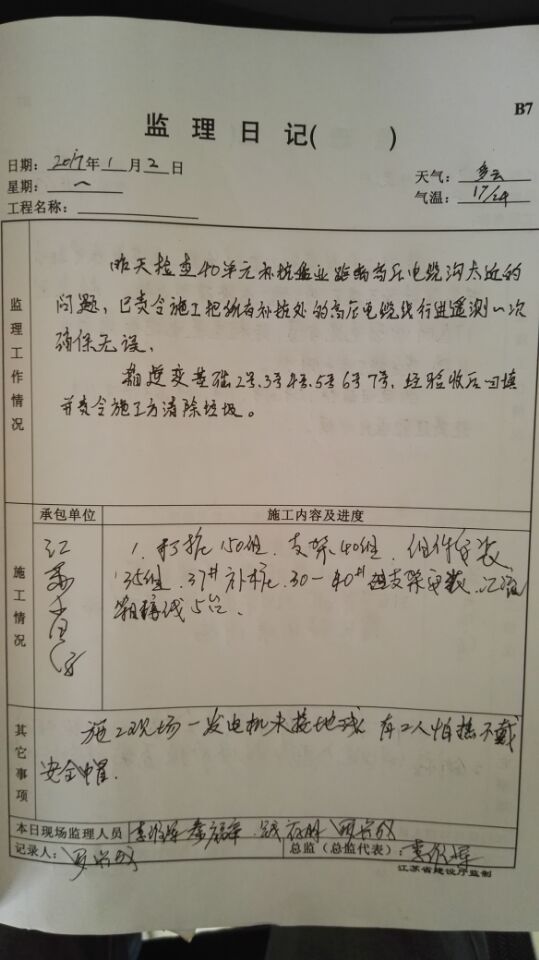 B7
监理日记( )
日期：2017年1月2日
天气：多云
星期：一
气温：17/24
工程名称：
监理工作情况
昨天检查40单元补桩 业路 高压电缆沟太近的
问题，已责令施工把所有补桩处的高压电缆线行进遥测一次
确保无误。
箱变基础2号、3号4号、5号6号7号，经验收后回填
并责令施工方清除垃圾。
承包单位
施工内容及进度
施工情况
江
1、打桩150组，支架40组，组件安装
35组，37#补桩，30—40#组支架安装，汇流
箱接线5台。
其它事项
施工现场一发电机未接地线，有工人怕热不戴
安全帽。
本日现场监理人员
记录人：
总监（总监代表）：
江苏省建设厅监制